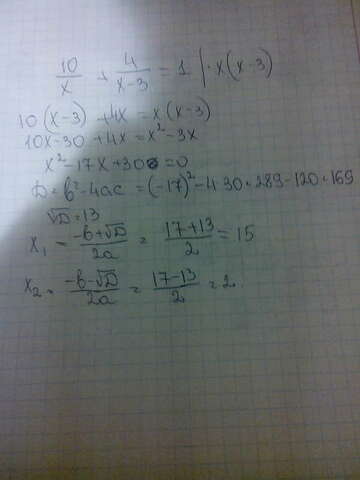 10/x + 4/x-3 = 1 | · x(x-3)
10(x-3) + 4x = x(x-3)
10x-30 + 4x = x²-3x
x²-17x+30=0
D = b²-4ac = (-17)²-4·30=289-120=169
√D=13
x₁ = -b+√D/2a = 17+13/2 = 15
x₂ = -b-√D/2a = 17-13/2 = 2.